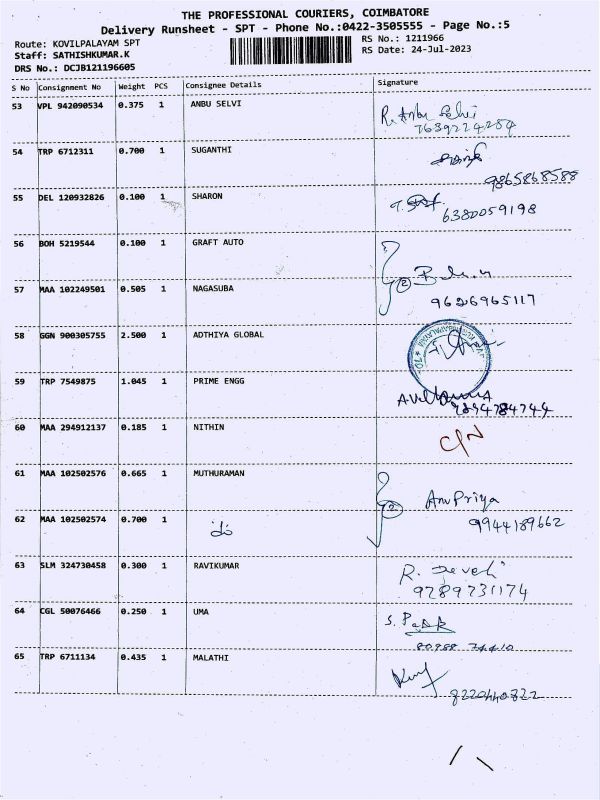 THE PROFESSIONAL COURIERS, COIMBATORE
Delivery Runsheet - SPT - Phone No.:0422-3505555 - Page No.:5
Route: KOVILPALAYAM SPT
RS No.: 1211966
Staff: SATHISHKUMAR.K
RS Date: 24-Jul-2023
DRS No.: DCJB121196605
S No Consignment No Weight PCS Consignee Details Signature
53 VPL 942090534 0.375 1 ANBU SELVI R. Anbu Selvi
7639224254
54 TRP 6712311 0.700 1 SUGANTHI
9865868588
55 DEL 120932826 0.100 1 SHARON
6380059198
56 BOH 5219544 0.100 1 GRAFT AUTO
2
57 MAA 102249501 0.505 1 NAGASUBA
9626965117
58 GGN 900305755 2.500 1 ADTHIYA GLOBAL
59 TRP 7549875 1.045 1 PRIME ENGG
9894784744
60 MAA 294912137 0.185 1 NITHIN C/N
61 MAA 102502576 0.665 1 MUTHURAMAN
2 AnuPriya
62 MAA 102502574 0.700 1 do 9944189662
63 SLM 324730458 0.300 1 RAVIKUMAR R. Devi
9789731174
64 CGL 50076466 0.250 1 UMA
80988 74410
65 TRP 6711134 0.435 1 MALATHI
8220440822